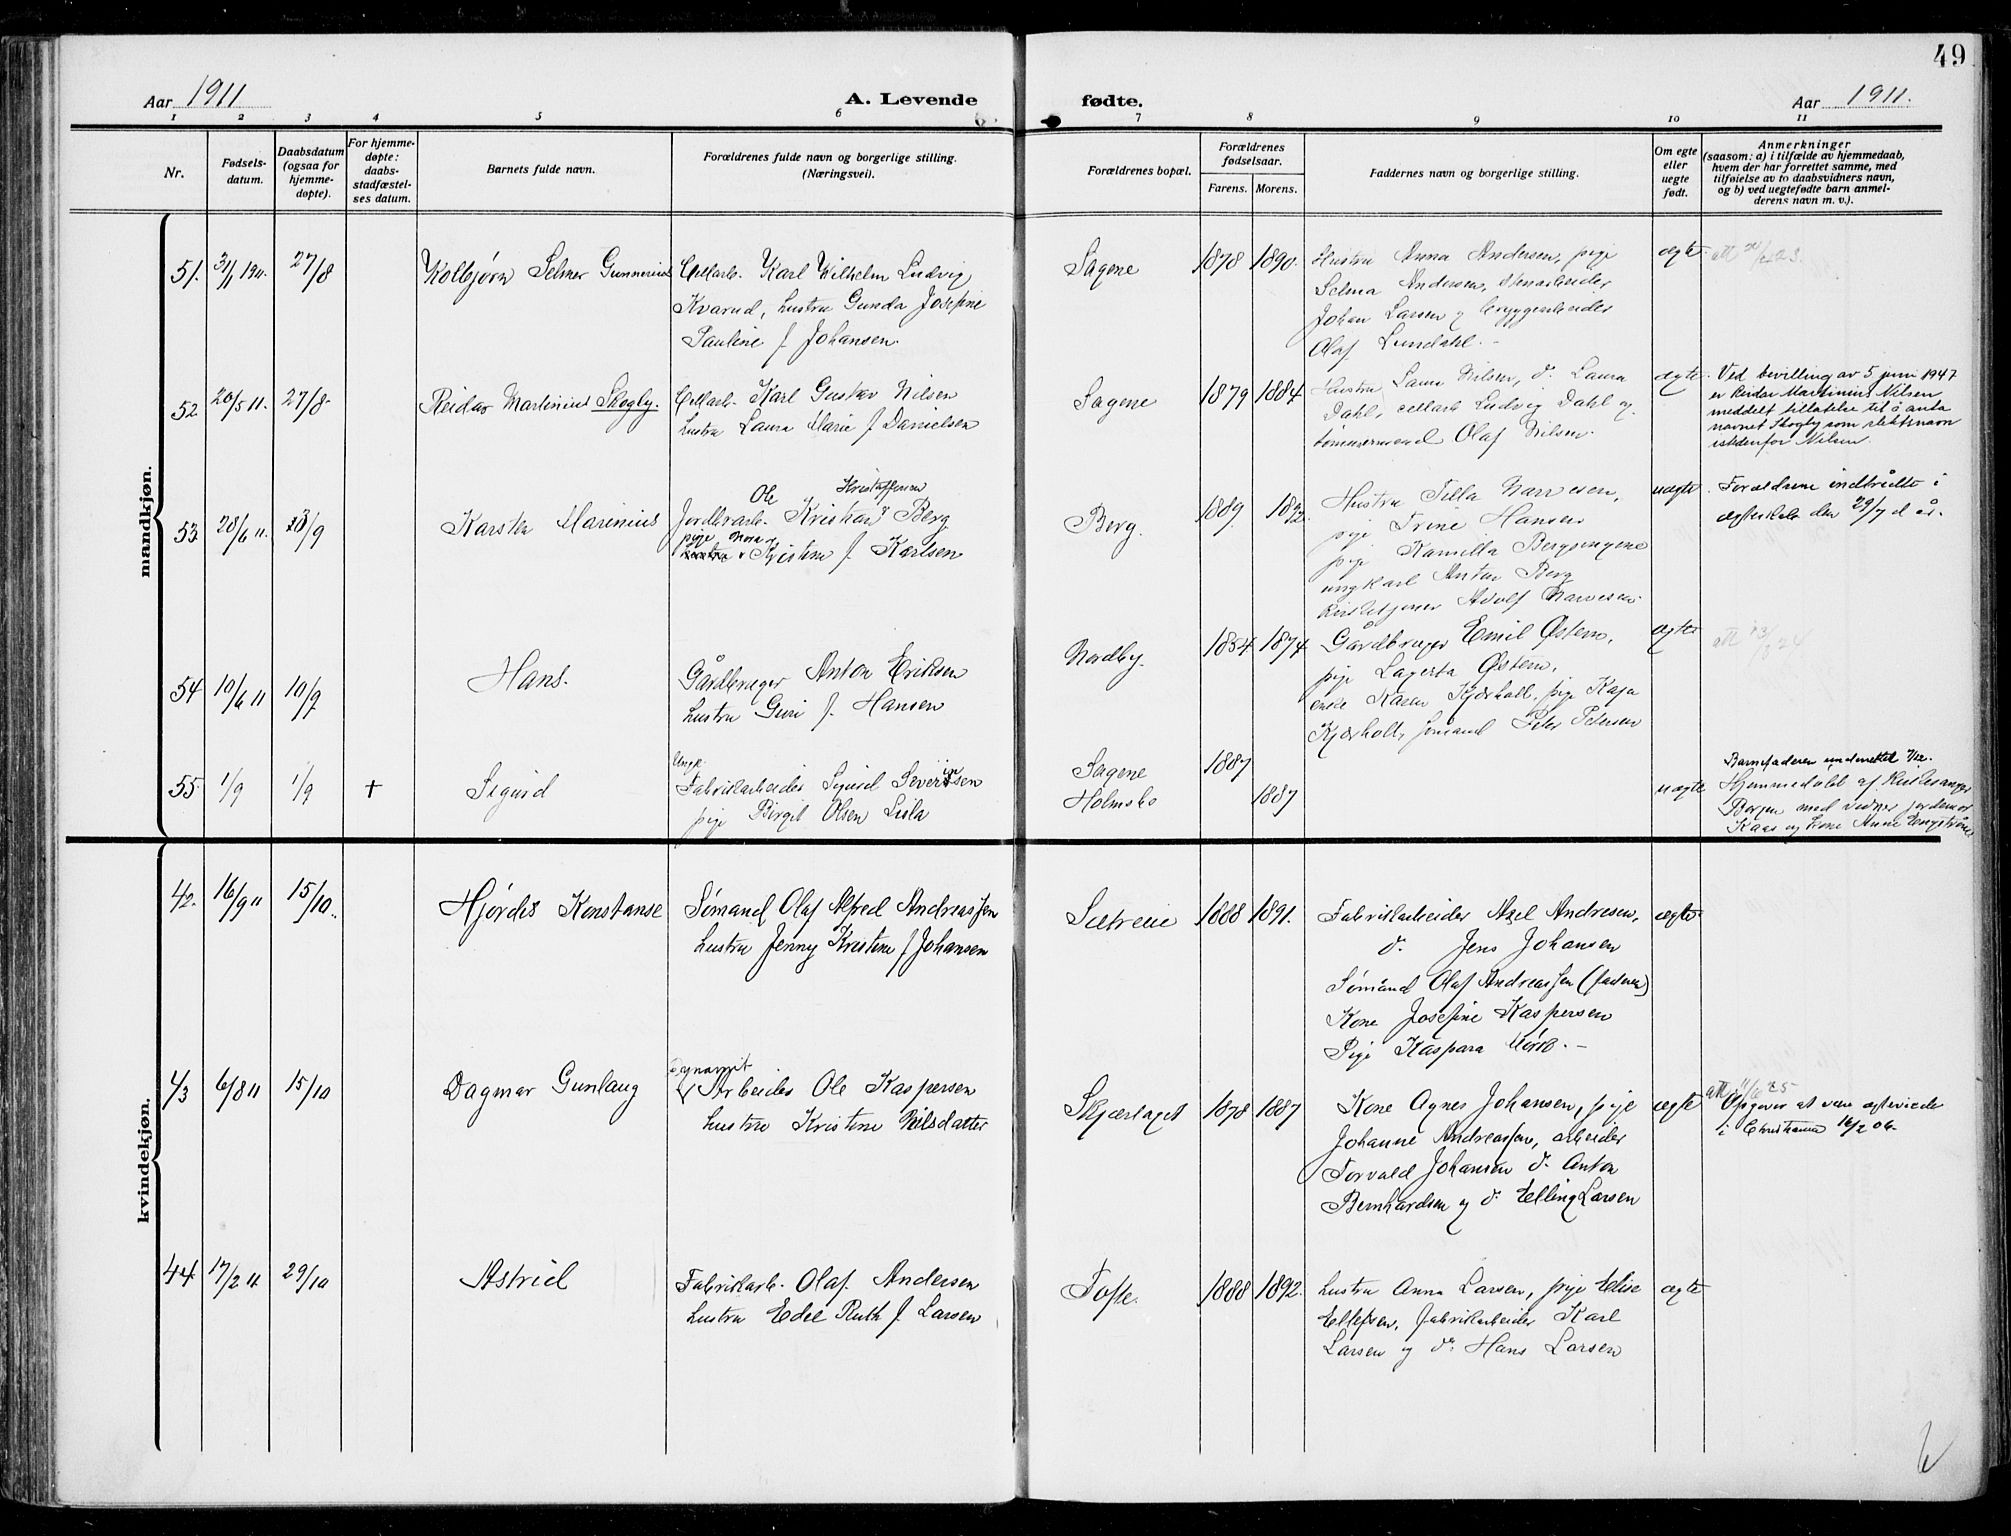 49
Aar 1911
A. Levende
fødte.
Aar 1911.
1 2 3 4 5 6 7 8 9 10 11
Nr.
Fødsels-
datum.
Daabsdatum
(ogsaa for
hjemme-
døpte).
For hjemme-
døpte:
daabs-
stadfæstel-
ses datum.
Barnets fulde navn.
Forældrenes fulde navn og borgerlige stilling.
(Næringsvei).
Forældrenes bopæl.
Forældrenes
fødselsaar.
Farens. Morens.
Faddernes navn og borgerlige stilling.
Om egte
eller
uegte
født.
Anmerkninger
(saasom: a) i tilfælde av hjemmedaab,
hvem der har forrettet samme, med
tilføielse av to daabsvidners navn,
og b) ved uegtefødte barn anmel-
derens navn m. v.).
mandkjøn.
51. 27/8 Kolbjørn Selmer Gunnerius
Cellarb. Karl Wilhelm Ludvig
Kvarud, hustru Gunda Josefine
Pauline f. Johansen.
Sagene 1878 1890.
Hustru Anna Andersen, pige
Selma Andersen, stenarbeider
Johan Larsen og bryggearbeider
Olaf Lundahl. -
ægte
52 20/5 11. 27/8. Reidar Martinius Skogly.
Cellarb. Karl Gustav Nilsen
hustru Laura Marie f. Danielsen
Sagene 1879 1884
Hustru Laura Nilsen, d. Laura
Dahl, cellarb. Ludvig Dahl og
tømmermand Olaf Nilsen.
ægte
Ved bevilling av 5 juni 1947
er Reidar Martinius Nilsen
meddelt tillatelse til å anta
navnet Skogly som slektsnavn
istedenfor Nilsen.
53 28/6 11. 3/9 Karsten Marinius
Ole Kristoffersen
Jordbrarb. Kristian Berg
pige Nora
hustru Kristine f. Karlsen
Berg. 1889. 1892.
Hustru Tilla Narvesen,
pige Trine Hansen
pige Kamilla Bergsengene
ungkarl Anton Berg
kirketjener Adolf Narvesen.
uægte
Forældrene indtrådte i
ægteskab den 29/7 d. år.
54 10/6 11 10/9 Hans.
Gårdbruger Anton Eriksen
hustru Guri f. Hansen
Nordby. 1854 1874
Gårdbruger Emil Østern,
pige Lagerta Østern,
enke Karen Kjærholt, pige Kaja
Kjærholt, sømand Peter Petersen
ægte
55. 1/9 1/9 + Sigurd
Ungk.
Fabrikarbeider Sigurd Severinsen
pige Birgit Olsen Lisla
Sagene 1887
Holmsbo 1887
uægte
Barnefaderen underrettet
Hjemmedøbt af
med vidner jordemor
Kaas og kone Anne Engstrøm
kvindekjøn.
42. 16/9 11 15/10. Hjørdis Konstanse
Sømand Olaf Alfred Andreassen
hustru Jenny Kristine f Johansen
Sætreie 1888 1891.
Fabrikarbeider Axel Andresen,
d. Jens Johansen
Sømand Olaf Andreassen (faderen)
Kone Josefine Kaspersen
Pige Kaspara Mørk. -
ægte
43 6/8 11 15/10 Dagmar Gunlaug
Dynamit
Arbeider Ole Kaspersen
hustru Kristine Nilsdatter
Skjærlaget 1878 1887
Kone Agnes Johansen, pige
Johanne Andreassen, arbeider
Torvald Johansen d. Anton
Bernhardsen og d. Elling Larsen
ægte
Opgiver at være ægteviede
i Christiania 16/2 06.
44. 17/2 11 29/10 Astrid
Fabrikarb. Olaf Andersen
hustru Edel Ruth f. Larsen
Tofte. 1888 1892.
hustru Anna Larsen, pige Elise
Ellefsen, fabrikarbeider Karl
Larsen og d. Hans Larsen
ægte